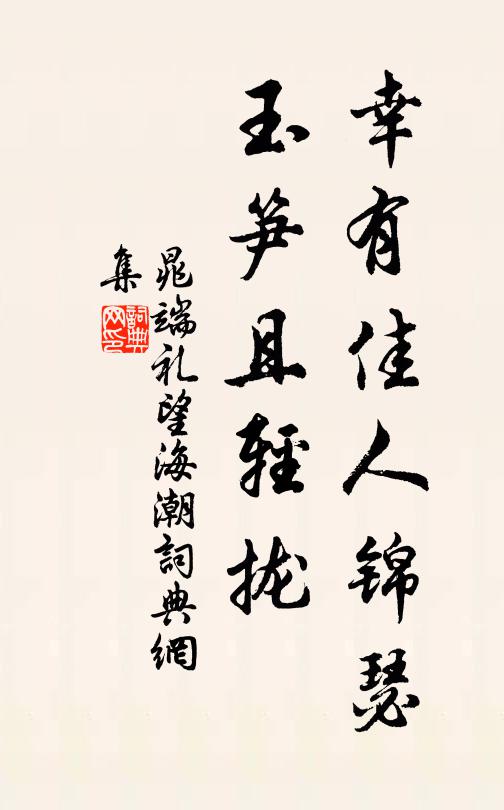 幸有佳人锦瑟
玉笋且輕拢
晁端礼望海潮詞典網
集
詞典
网印